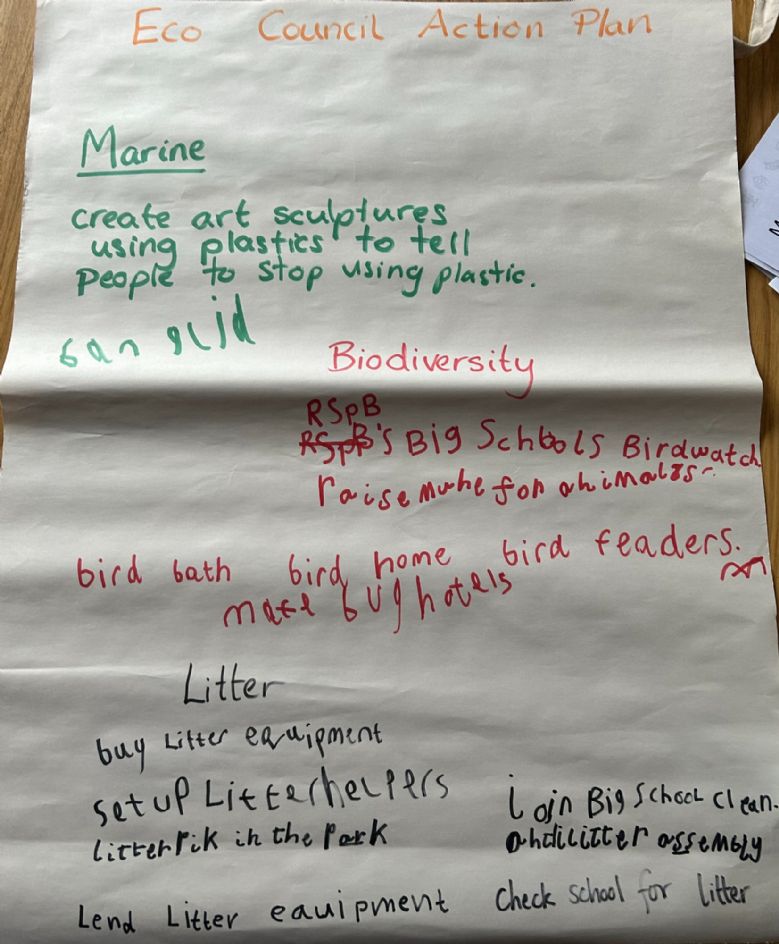 Eco Council Action Plan
Marine
create art sculptures
using plastics to tell
people to stop using plastic.
ban
Biodiversity
RSpB
RSpB's Big Schools Birdwatch
raise for animals
bird bath bird home bird feaders.
make bug hotels
Litter
buy Litter equipment
set up Litter helpers
litter pik in the Park
Lend Litter equipment
join Big School clean.
antilitter assembly
Check school for litter